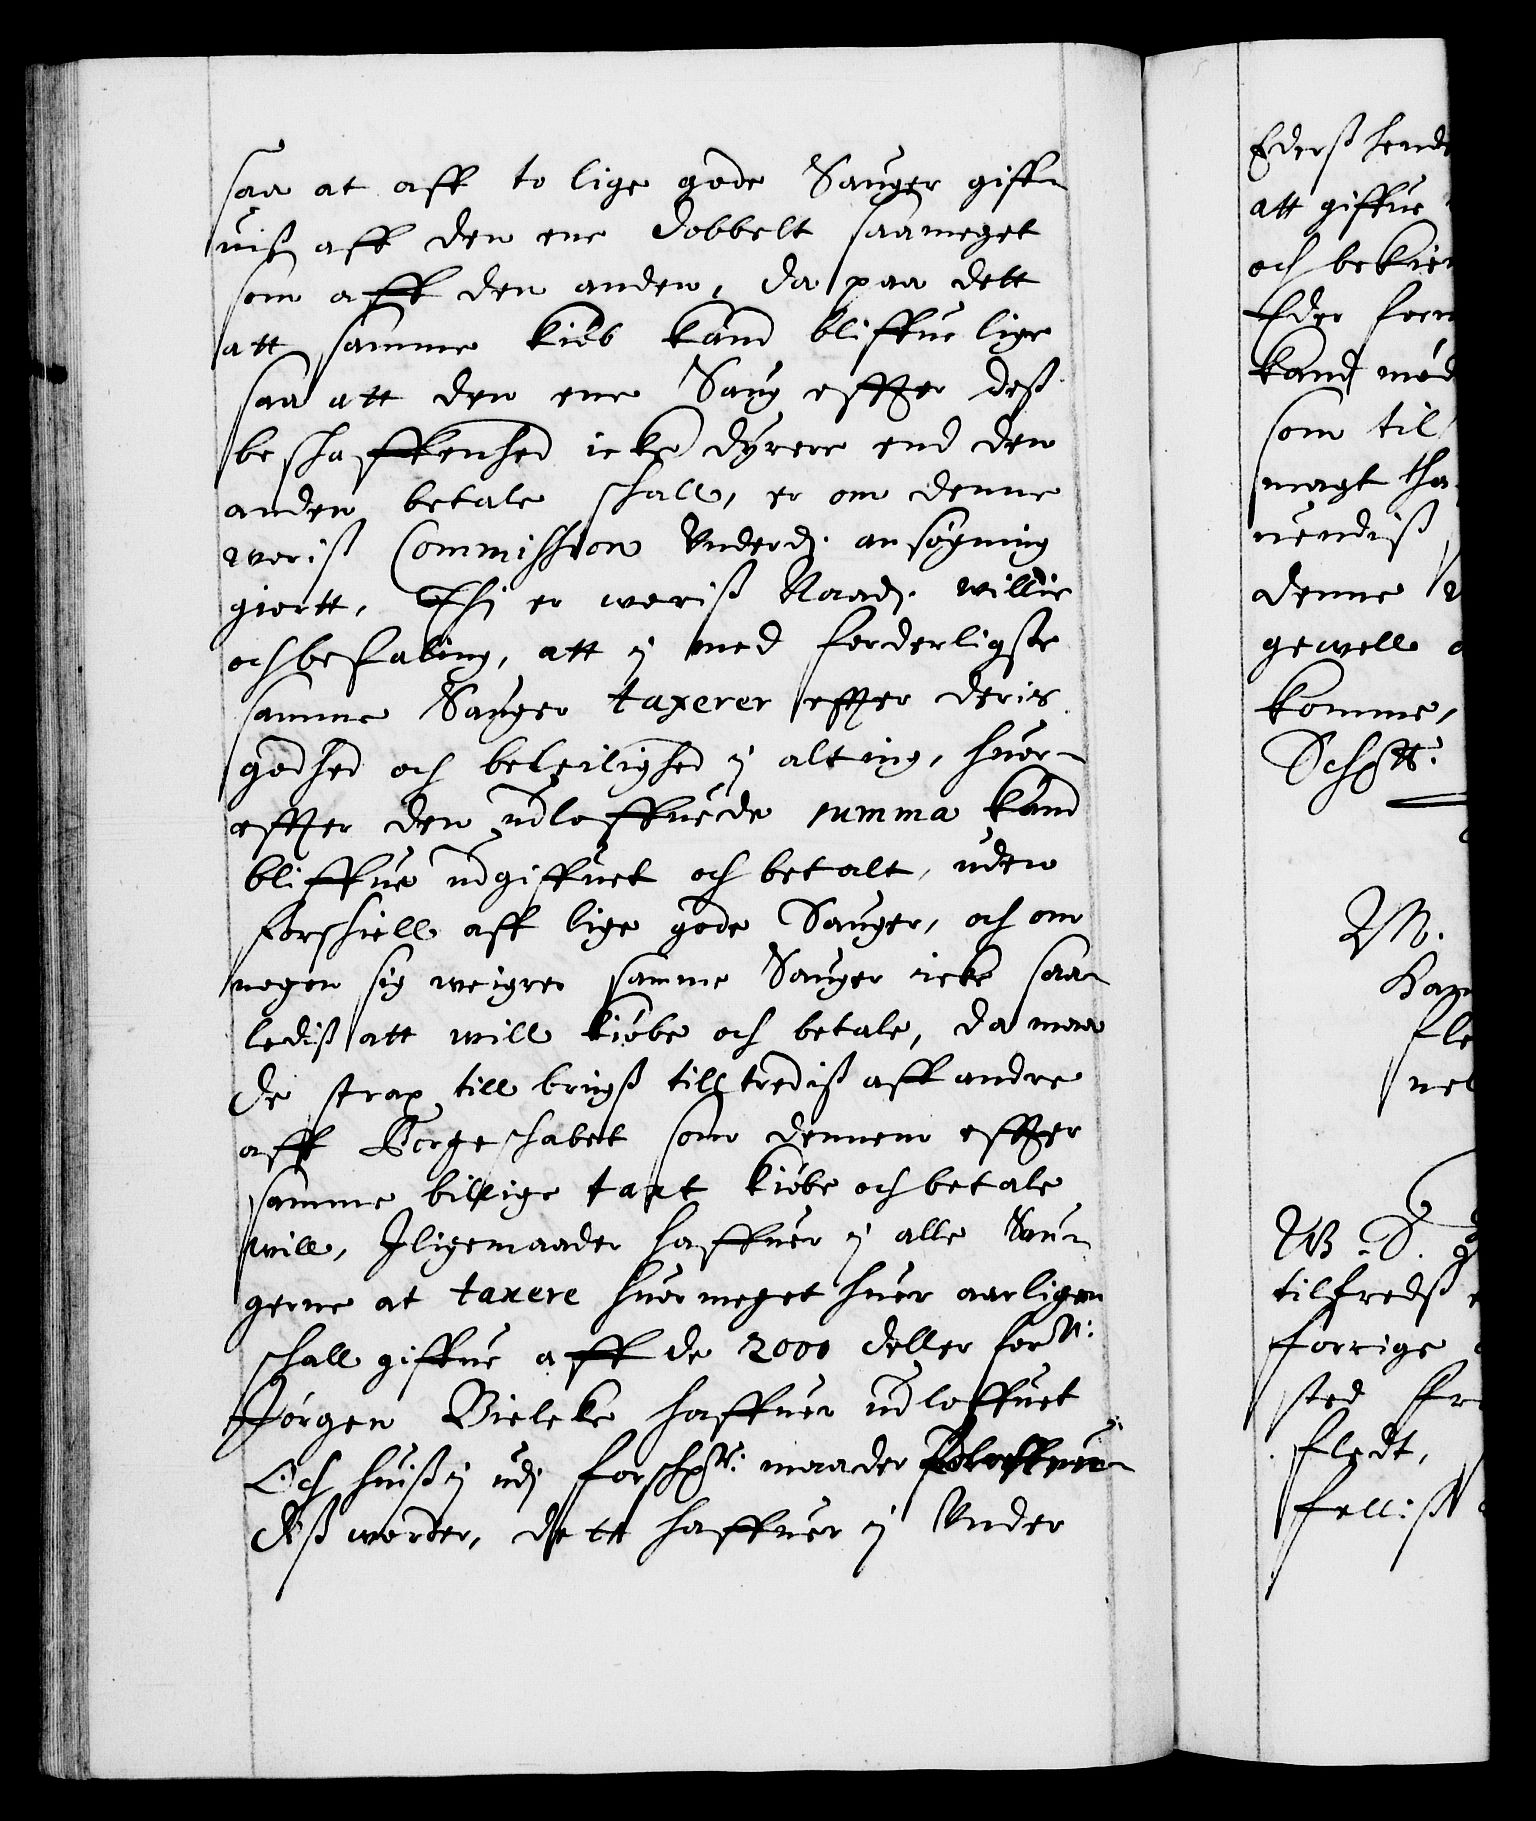 saa at aff to lige gode Sauger giff-
uis aff den ene dobbelt saameget
som aff den anden, da paa dett
att samme kiøb kand bliffue lige
saa att den ene Saug effter dess
beschaffenhed icke dyrere end den
anden betale schall, er om denne
woris Commission Underd: ansøgning
giortt, Thi er woris Naad: willie
och befaling, att j med forderligste
samme Sauger taxerer effter deris
godhed och beleilighed j alting, huor-
effter den udloffuede summa kand
bliffue udgiffuet och betalt, uden
forschiell aff lige gode Sauger, och om
nogen sig weigre samme Sauger icke saa-
lediss att will kiøbe och betale, da maa
de strax till bragss tilltrediss aff andre
aff Borgeschabet som dennem effter
samme billige taxt kiøbe och betale
will, Jligemaader haffuer j alle Sau-
gerne at taxere huor meget huer aarligen
schall giffue aff de 2000 deller for:ne
Jørgen Bielcke haffuer udloffuet
Och huiss j udj forsch:ne maader
diss worder, dett haffuer j Under
Ederss hende
att giffue
och bekie
Eder
kand
som til
magt
uendiss
denne
gewell
komme,
Schr:
M.
Han
fle
W. S.
tilfredss
forrige
sted
fledt,
felliss